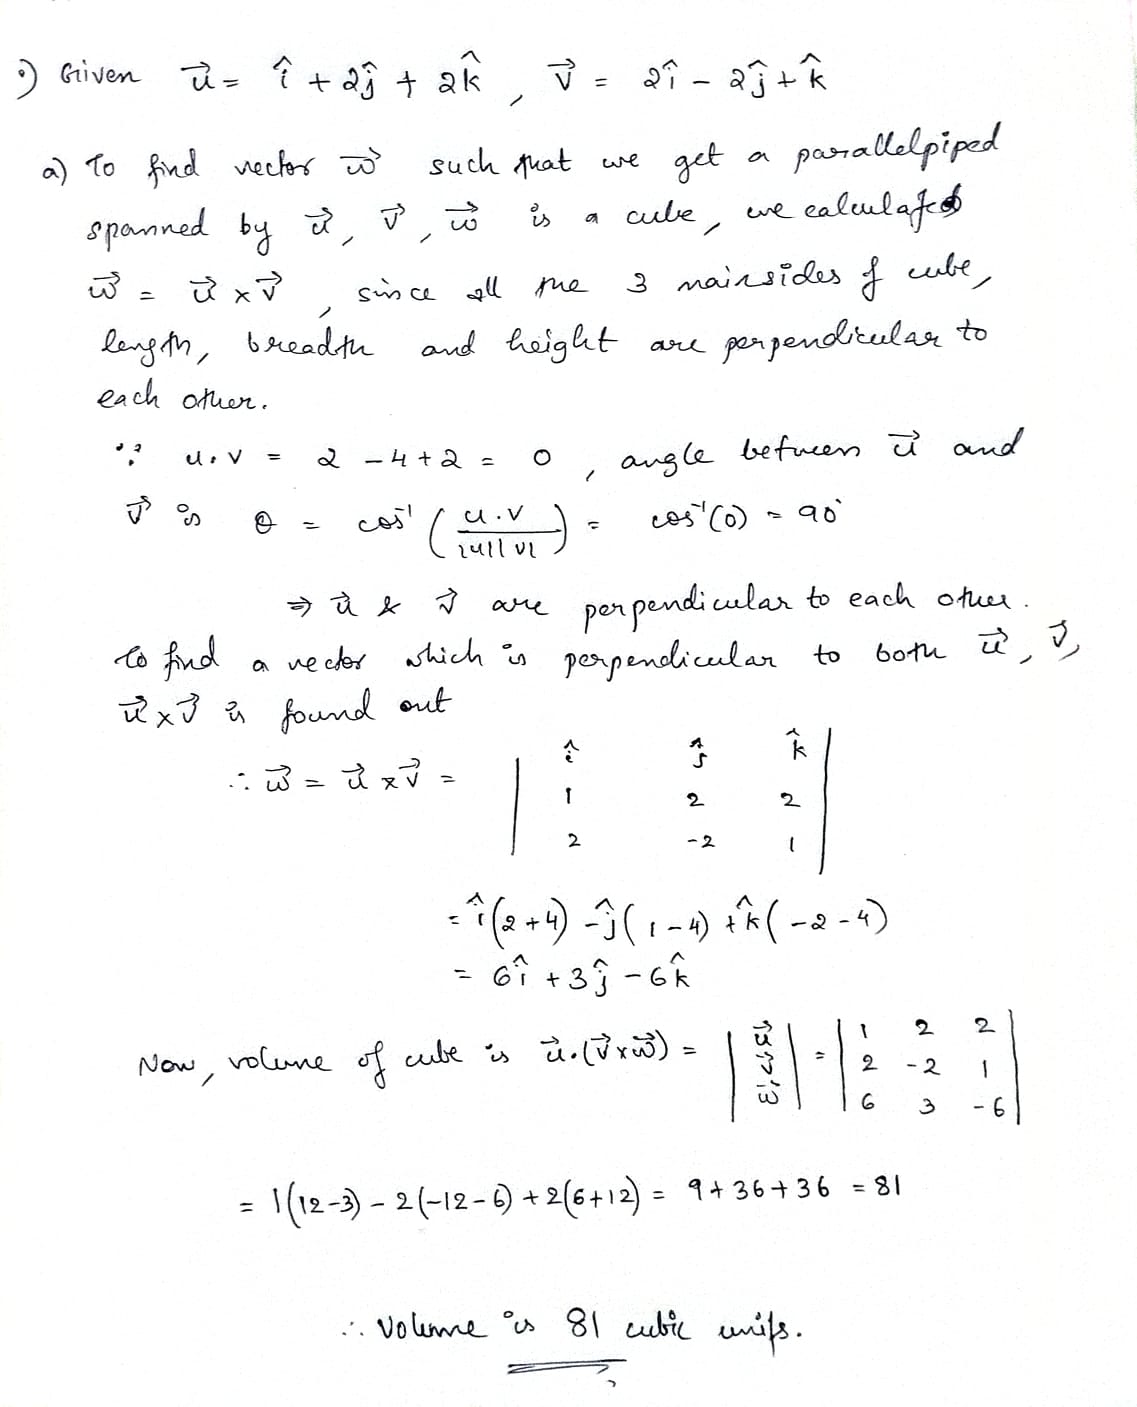 •) Given u⃗ = î + 2ĵ + 2k̂ , v⃗ = 2î - 2ĵ + k̂
a) To find vector w⃗ such that we get a parallelpiped
spanned by u⃗, v⃗, w⃗ is a cube, we calculated
w⃗ = u⃗ × v⃗ , since all the 3 mainsides of cube,
length, breadth and height are perpendicular to
each other.
∵ u.v = 2 - 4 + 2 = 0 , angle between u⃗ and
v⃗ is θ = cos⁻¹ ( u.v / |u||v| ) = cos⁻¹(0) = 90°
⇒ u⃗ & v⃗ are perpendicular to each other.
to find a vector which is perpendicular to both u⃗, v⃗,
u⃗ × v⃗ is found out
∴ w⃗ = u⃗ × v⃗ = | î ĵ k̂ |
| 1 2 2 |
| 2 -2 1 |
= î(2+4) - ĵ(1-4) + k̂(-2-4)
= 6î + 3ĵ - 6k̂
Now, volume of cube is u⃗.(v⃗ × w⃗) = | u⃗, v⃗, w⃗ | = | 1 2 2 |
| 2 -2 1 |
| 6 3 -6 |
= 1(12-3) - 2(-12-6) + 2(6+12) = 9+36+36 = 81
∴ Volume is 81 cubic units.